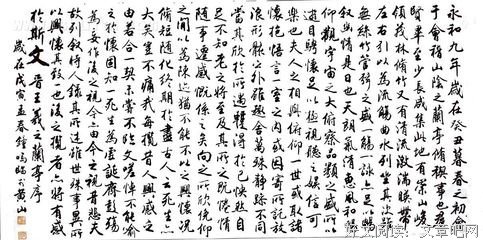 永和九年歲在癸丑暮春之初會
于會稽山陰之蘭亭脩禊事也群
賢畢至少長咸集此地有崇山峻
領茂林脩竹又有清流激湍暎帶
左右引以為流觴曲水列坐其次雖
無絲竹管弦之盛一觴一詠亦足以暢
叙幽情是日也天朗氣清惠風和暢
仰觀宇宙之大俯察品類之盛所以
遊目騁懷足以極視聽之娛信可
樂也夫人之相與俯仰一世或取諸
懷抱悟言一室之內或因寄所託放
浪形骸之外雖趣舍萬殊靜躁不同
當其欣於所遇暫得於己怏然自
足不知老之將至及其所之既倦情
隨事遷感慨係之矣向之所欣俛仰
之間以為陳迹猶不能不以之興懷況
脩短隨化終期於盡古人云死生亦
大矣豈不痛哉每攬昔人興感之
由若合一契未嘗不臨文嗟悼不能喻
之於懷固知一死生為虛誕齊彭殤
為妄作後之視今亦由今之視昔悲夫
故列叙時人錄其所述雖世殊事異所
以興懷其致一也後之攬者亦將有感
於斯文 晉王羲之蘭亭序
歲在戊寅孟春鍾鳴臨於黃山
好文阅读：文章吧网